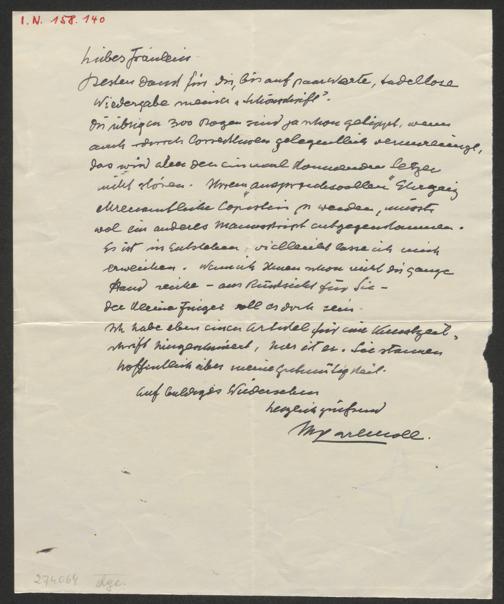 I.N. 158.140
Liebes Fräulein
Besten Dank für die, bis auf paar Worte, tadellose
Wiedergabe meiner „Schönschrift“.
Die übrigen 300 Bogen sind ja schon getippt, wenn
auch durch Correkturen gelegentlich verunreinigt,
das wird aber den einmal kommenden Setzer
nicht stören. Ihrem „anspruchsvollen“ Ehrgeiz
ehrenamtliche Copistin zu werden, müsste
wol ein anderes Manuscript entgegenkommen.
Es ist in Entstehen, vielleicht lasse ich mich
erweichen. Wenn ich Ihnen schon nicht die ganze
Hand reiche – aus Rücksicht für Sie –
der kleine Finger soll es doch sein.
Ich habe eben einen Artikel für eine Kunstzeit-
schrift hingeschmiert, hier ist er. Sie staunen
hoffentlich über meine Gutmütigkeit.
Auf baldiges Wiedersehen
herzlich grüssend
Carl Moll.
274064